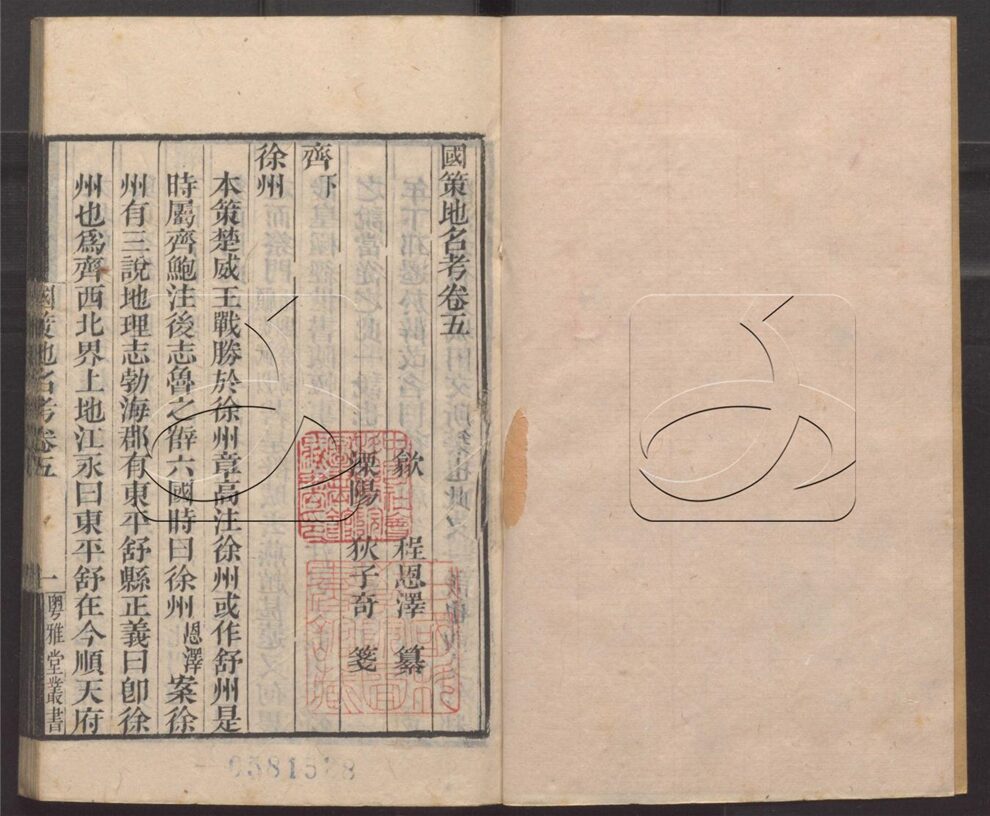 國策地名考卷五
歙 程恩澤 纂
溧陽 狄子奇 箋
齊下
徐州
本策楚威王戰勝於徐州章高注徐州或作舒州是
時屬齊鮑注後志魯之薛六國時曰徐州恩澤案徐
州有三說地理志勃海郡有東平舒縣正義曰卽徐
州也爲齊西北界上地江永曰東平舒在今順天府
國策地名考卷五
一
粵雅堂叢書